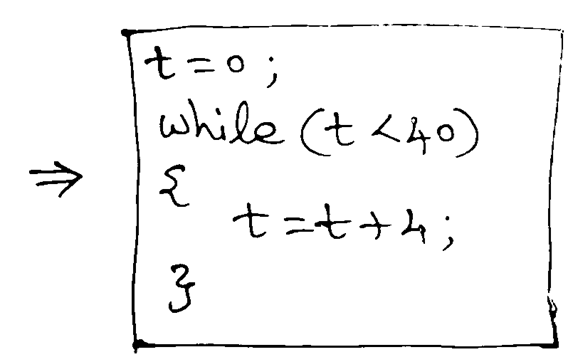 t = 0 ;
while (t < 40)
⇒ {
t = t + h ;
}